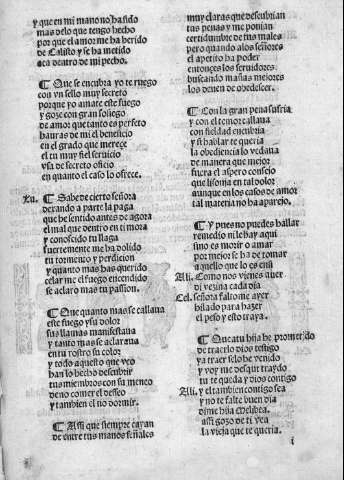 y que en mi mano no ha sido
mas de lo que tengo hecho
por que el amor me ha herido
de Calisto y se ha metido
aca dentro de mi pecho.
¶ Que se encubra yo te ruego
con vn sello muy secreto
porque yo amate este fuego
y goze con gran sosiego
de amor que tanto es perfeto
hauras de mi el beneficio
en el grado que merece
el tu muy fiel seruicio
vsa de secreto oficio
en quanto el caso lo ofrece.
Lu. ¶ Sabe de cierto señora
dexando a parte la paga
que he sentido antes de agora
el mal que dentro en ti mora
y conoscido tu llaga
fuertemente me ha dolido
tu tormento y perdicion
y quanto mas has querido
celar me el fuego encendido
se aclaro mas tu passion.
¶ Que quanto mas se callaua
este fuego y su dolor
sus llamas manifestaua
y tanto mas se aclaraua
en tu rostro su color
y todo aquesto que veo
han lo hecho descubrir
tus miembros con su meneo
de no comer el desseo
y tambien el no dormir.
¶ Assi que siempre cayan
de entre tus manos señales
muy claras que descubrian
tus penas y me ponian
certidumbre de tus males
pero quando a los señores
el apetito ha poder
entonces los seruidores
buscando mañas mejores
los deuen de obedescer.
¶ Con la gran pena sufria
y con el temor callaua
con fieldad encubria
y si hablar te queria
la obediencia lo vedaua
de manera que mejor
fuera el aspero consejo
que lisonja en tal dolor
aunque en los casos de amor
tal materia no ha aparejo.
¶ Y pues no puedes hallar
remedio ni le hay aqui
sino es morir o amar
por mejor se ha de tomar
a quello que lo es en si
Ali. Como nos vienes a ver
di vezina cada dia
Cel. señora falto me ayer
hilado para hazer
el peso y esto traya.
¶ Que a tu hija he prometido
de traerlo dios testigo
ya traer selo he venido
y voy me dosque traydo
tu te queda y dios contigo
Ali. y el tambien contigo sea
y no te falte buen dia
dime hija Melibea.
assi gozo de ti vea
la vieja que te queria.
i